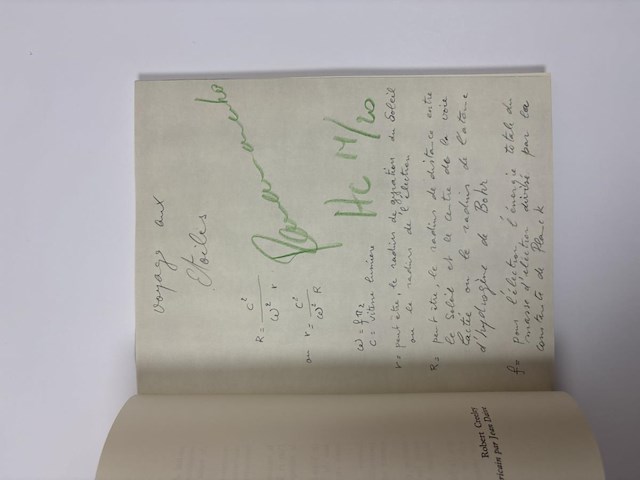 Voyage aux
Etoiles
R = c² / ω² r
ou r = c² / ω² R
HC 14/20
C = vitesse lumière
r = peut être, le radius de gyration du Soleil
ou le radius de l'électron
R = peut être, le radius de distance entre
le Soleil et le centre de la voie
lactée ou le radius de l'atome
d'hydrogène de Bohr
f = pour l'électron l'énergie totale du
masse d'électron divisé par la
constante de Planck
Robert Cr
ricain par Jean